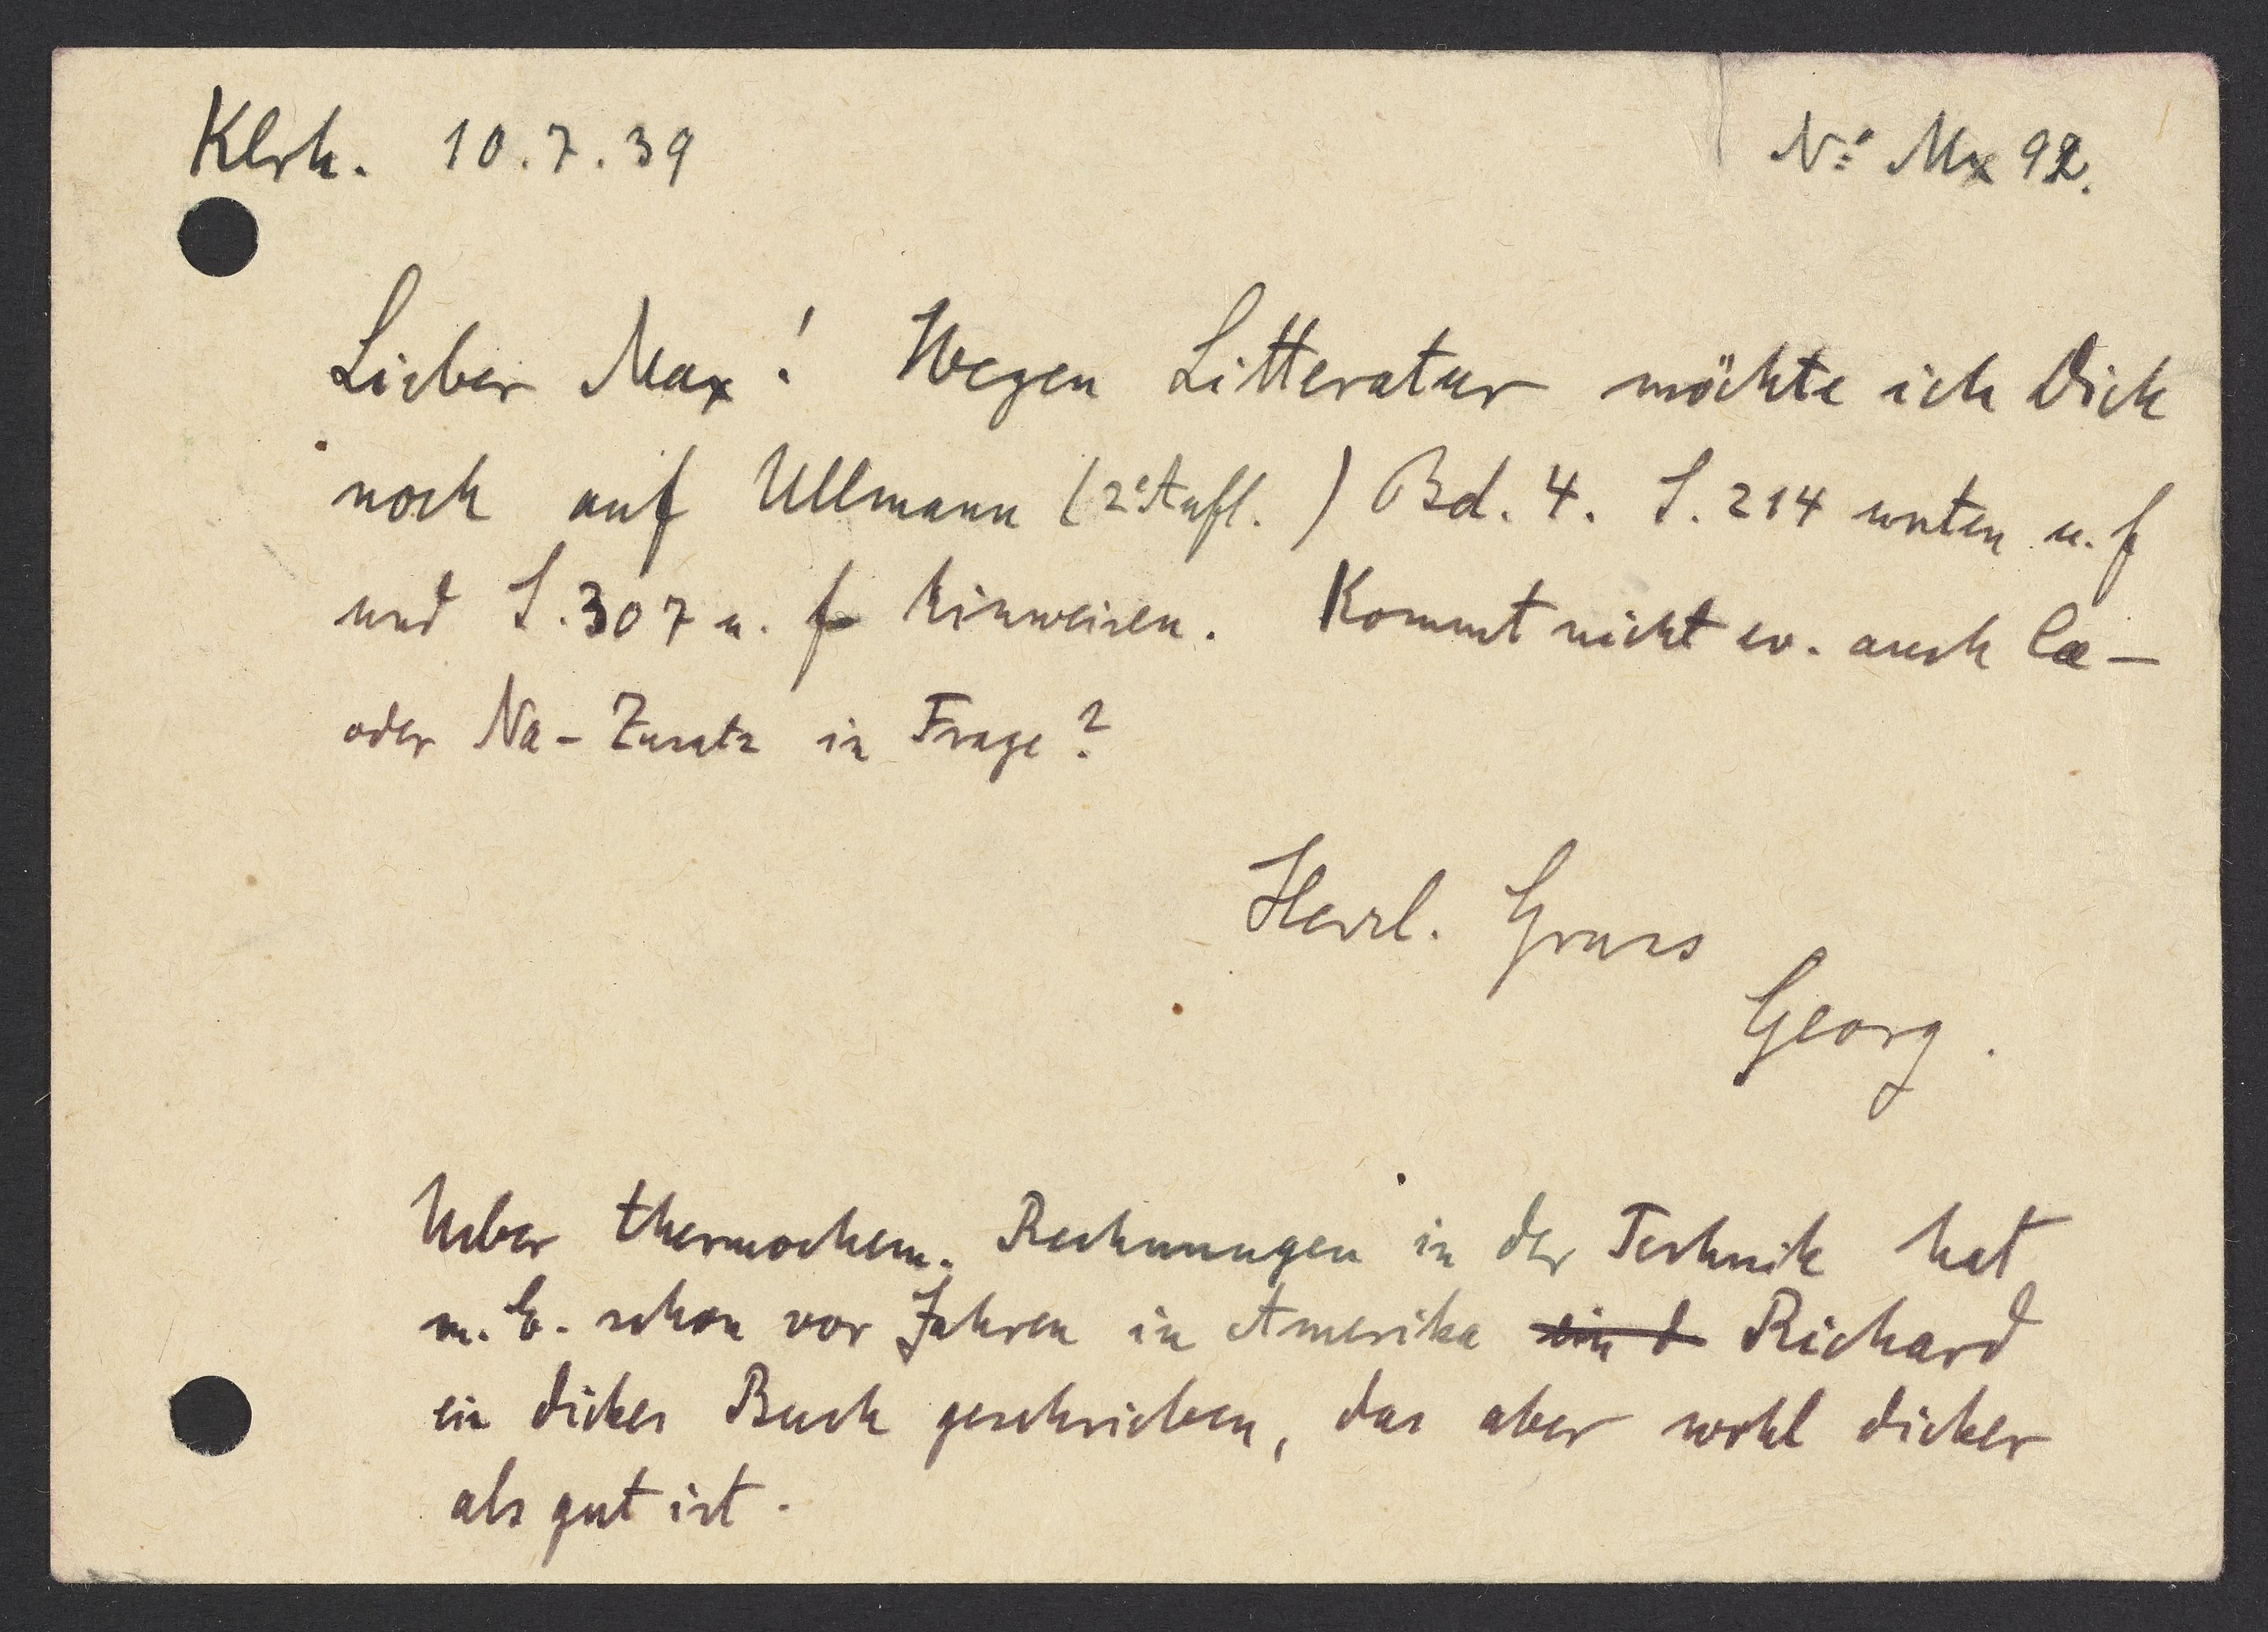 Klrh. 10.7.39
No Mx 92.
Lieber Max! Wegen Litteratur möchte ich Dich
noch auf Ullmann (2e Aufl.) Bd. 4. S. 214 unten u. f
und S. 307 u. f hinweisen. Kommt nicht ev. auch Ca-
oder Na-Zusatz in Frage?
Herzl. Gruss
Georg.
Ueber thermochem. Rechnungen in der Technik hat
m. E. schon vor Jahren in Amerika ein d Richard
ein dickes Buch geschrieben, das aber wohl dicker
als gut ist.